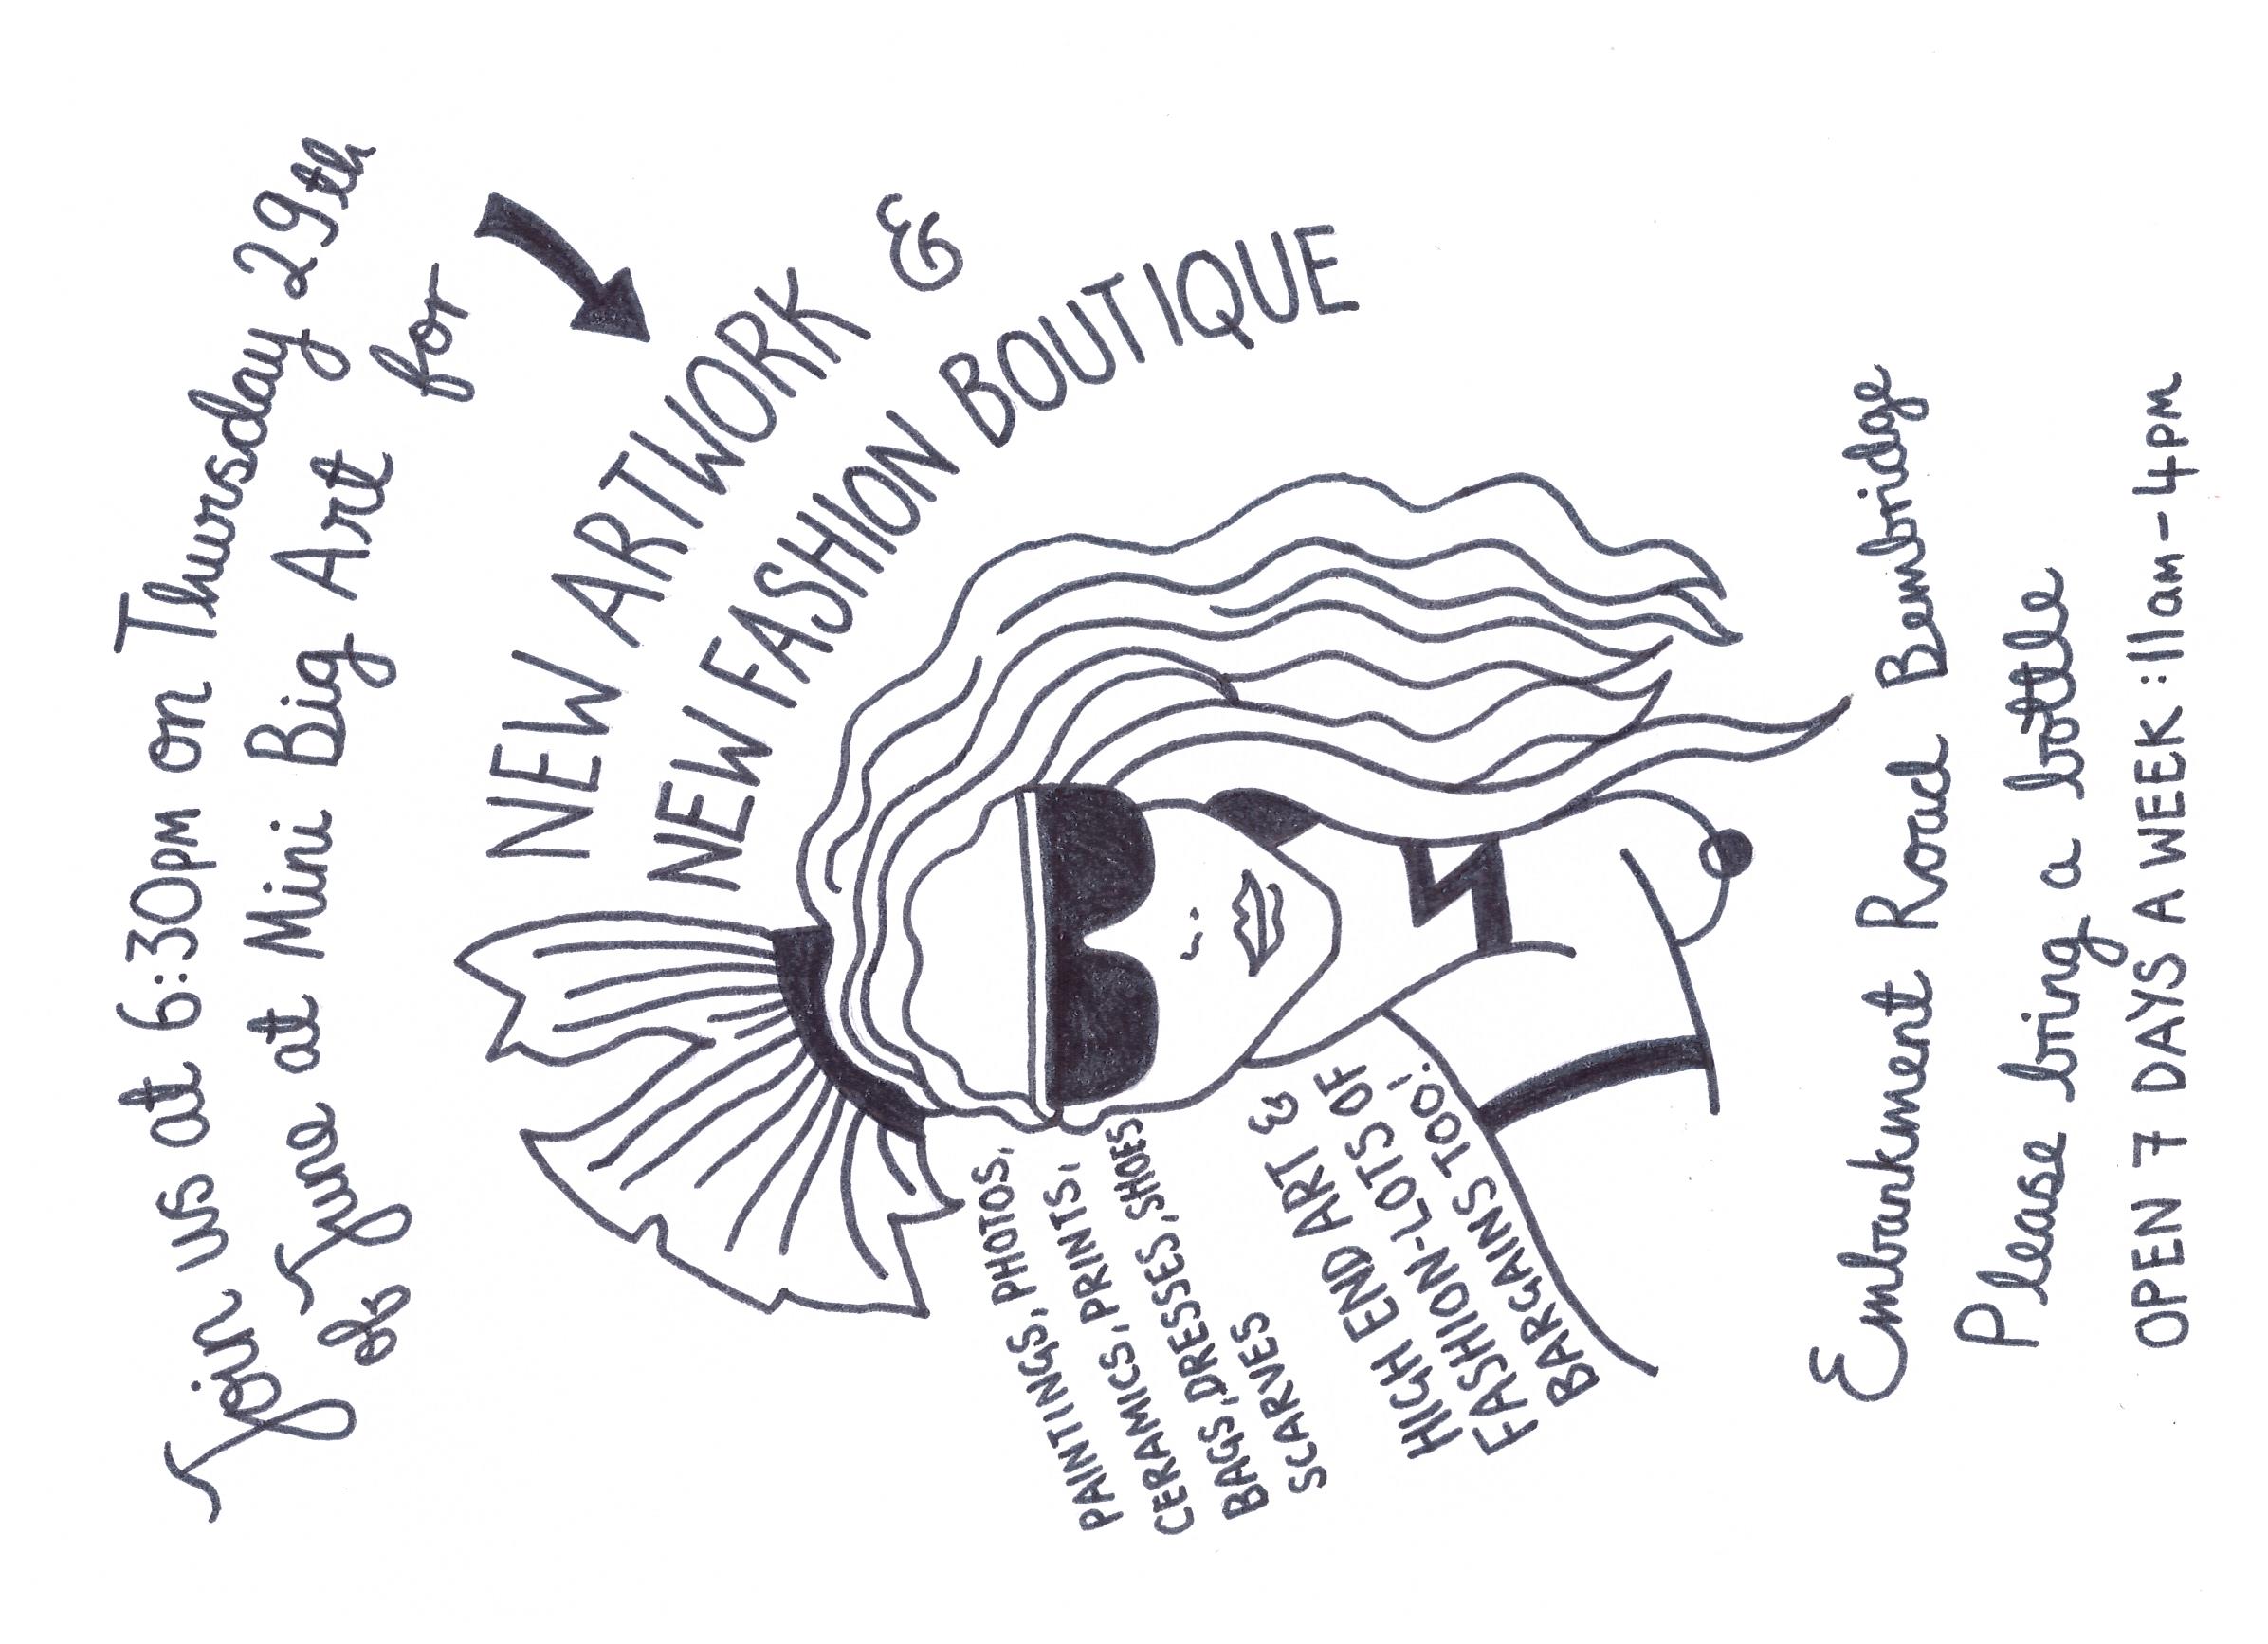 Join us at 6:30pm on Thursday 29th
of June at Mini Big Art for
NEW ARTWORK &
NEW FASHION BOUTIQUE
PAINTINGS, PHOTOS,
CERAMICS, PRINTS,
BAGS, DRESSES, SHOES
SCARVES
HIGH END ART &
FASHION-LOTS OF
BARGAINS TOO!
Embankment Road Bembridge
Please bring a bottle
OPEN 7 DAYS A WEEK:11am-4pm